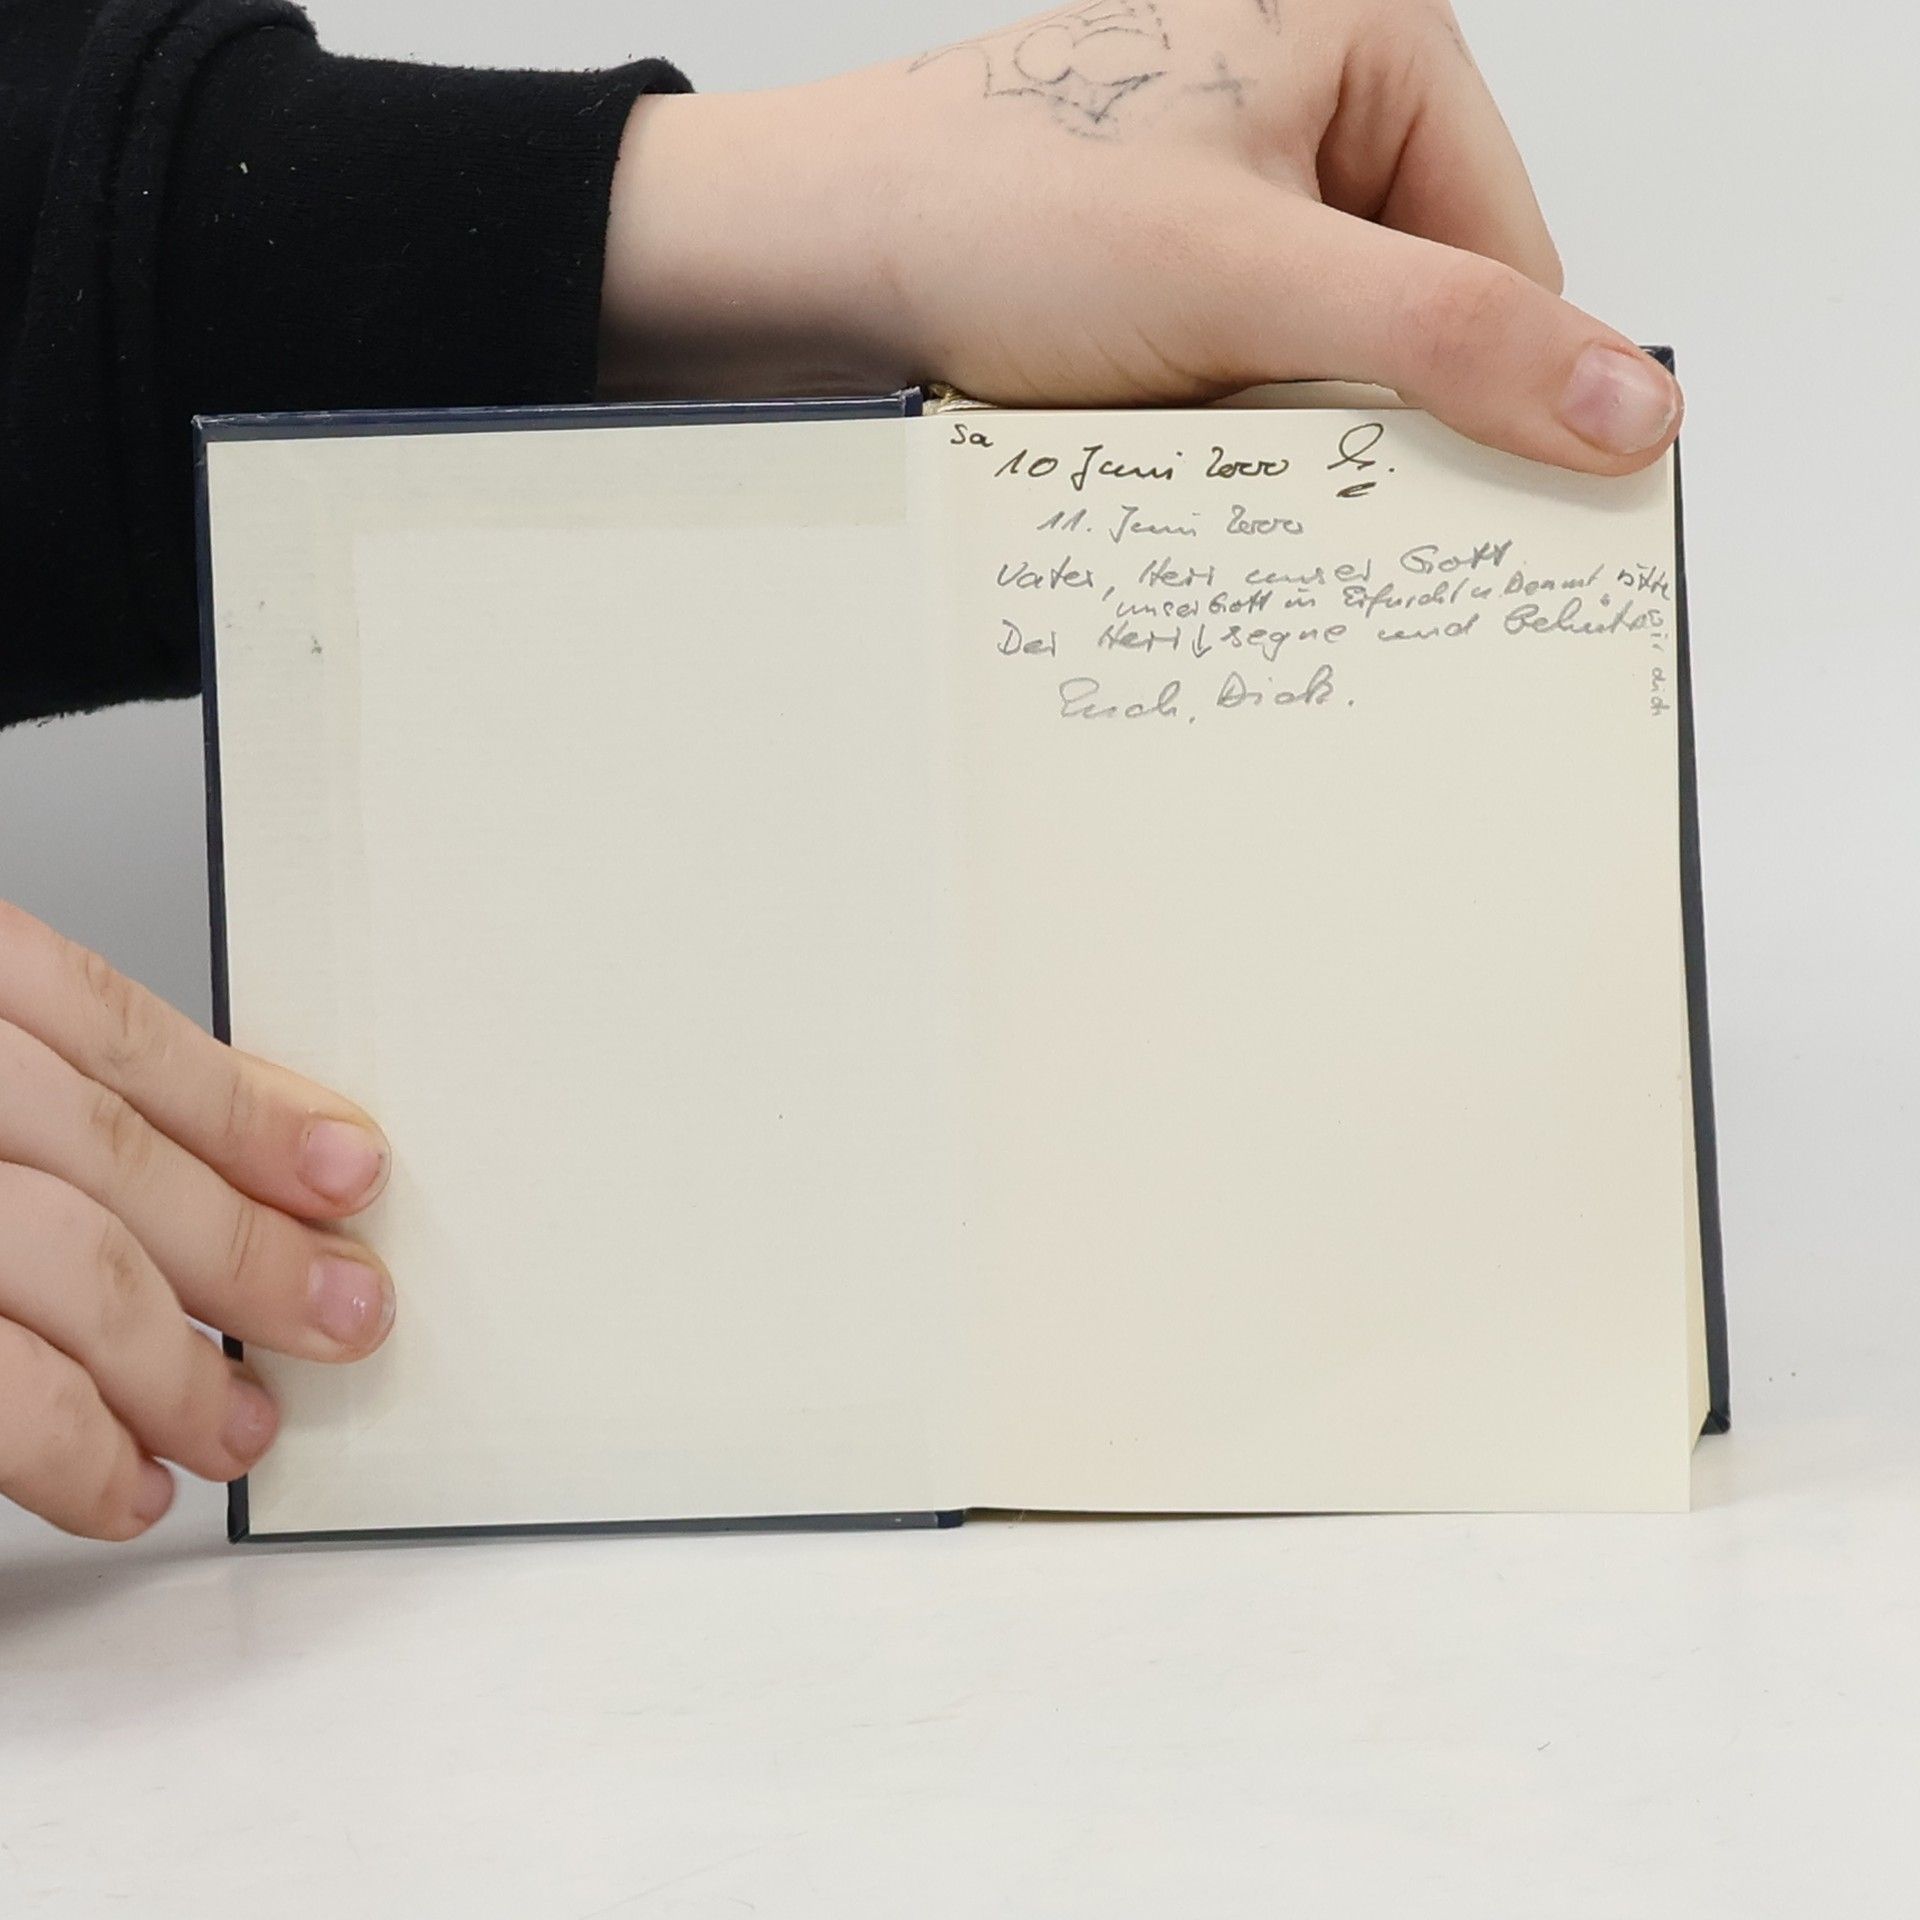 Sa
10 Juni 2000
11. Juni 2000
Vater, Herr unser Gott
unser Gott in Erfurcht u. Demut bitte
Der Herr ↓ segne und behüte
wir dich
Euch, Dich.